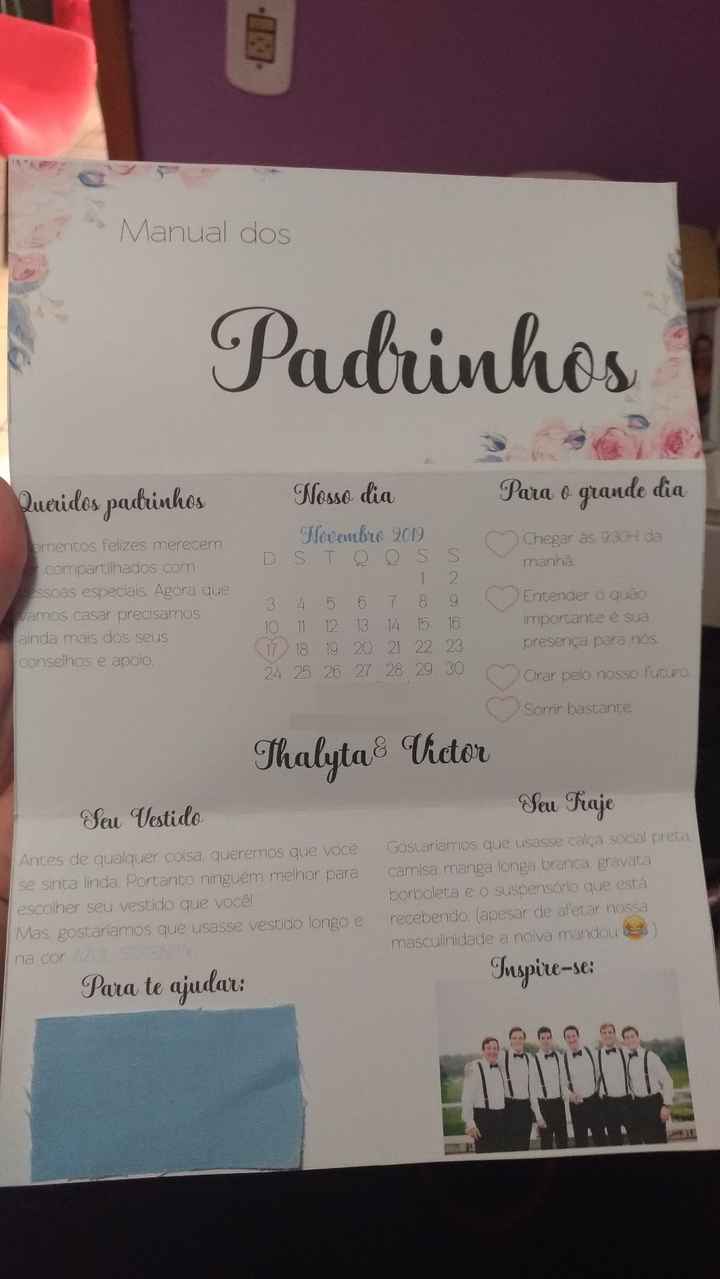 Manual dos
Padrinhos
Queridos padrinhos
felizes merecem
compartilhados com
especiais. Agora que
vamos casar precisamos
ainda mais dos seus
conselhos e apoio.
Nosso dia
Novembro 2019
D S T Q Q S S
1 2
3 4 5 6 7 8 9
10 11 12 13 14 15 16
17 18 19 20 21 22 23
24 25 26 27 28 29 30
Para o grande dia
Chegar às 9:30H da
manhã.
Entender o quão
importante é sua
presença para nós.
Orar pelo nosso futuro.
Sorrir bastante.
Thalyta & Victor
Seu Vestido
Antes de qualquer coisa, queremos que você
se sinta linda. Portanto ninguém melhor para
escolher seu vestido que você!
Mas, gostaríamos que usasse vestido longo e
na cor AZUL
Para te ajudar:
Seu Traje
Gostaríamos que usasse calça social preta,
camisa manga longa branca, gravata
borboleta e o suspensório que está
recebendo. (apesar de afetar nossa
masculinidade a noiva mandou 😂)
Inspire-se: